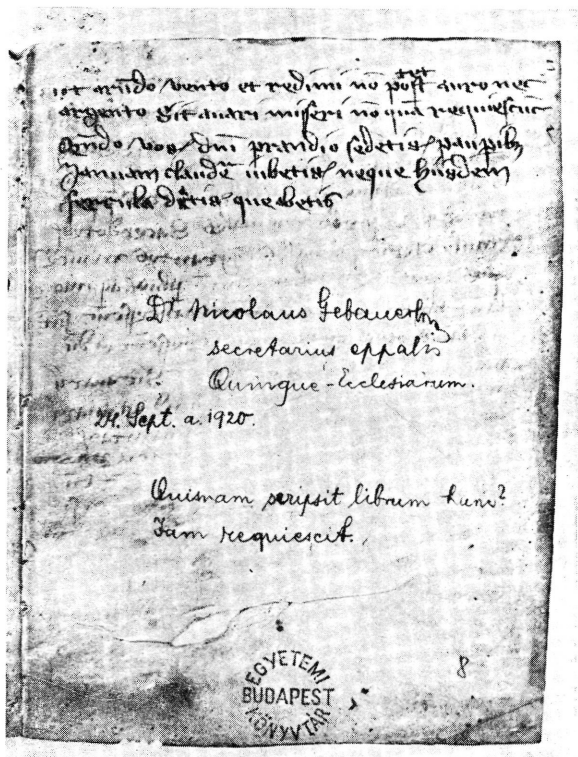 ut arūdo vento et redimi nō potest auro nec
argento Sit auari miseri nō qua requiescūt
Qn̄do vos dn̄i prandio sedetis paupib
Januam claude iubetis neque
fercula datis que
Dr. Nicolaus Gebauer
secretarius eppalis
Quinque-Ecclesiarum.
24. Sept. a. 1920.
Quisnam scripsit librum hunc?
Jam requiescit.
8
EGYETEMI
BUDAPEST
KÖNYVTÁR